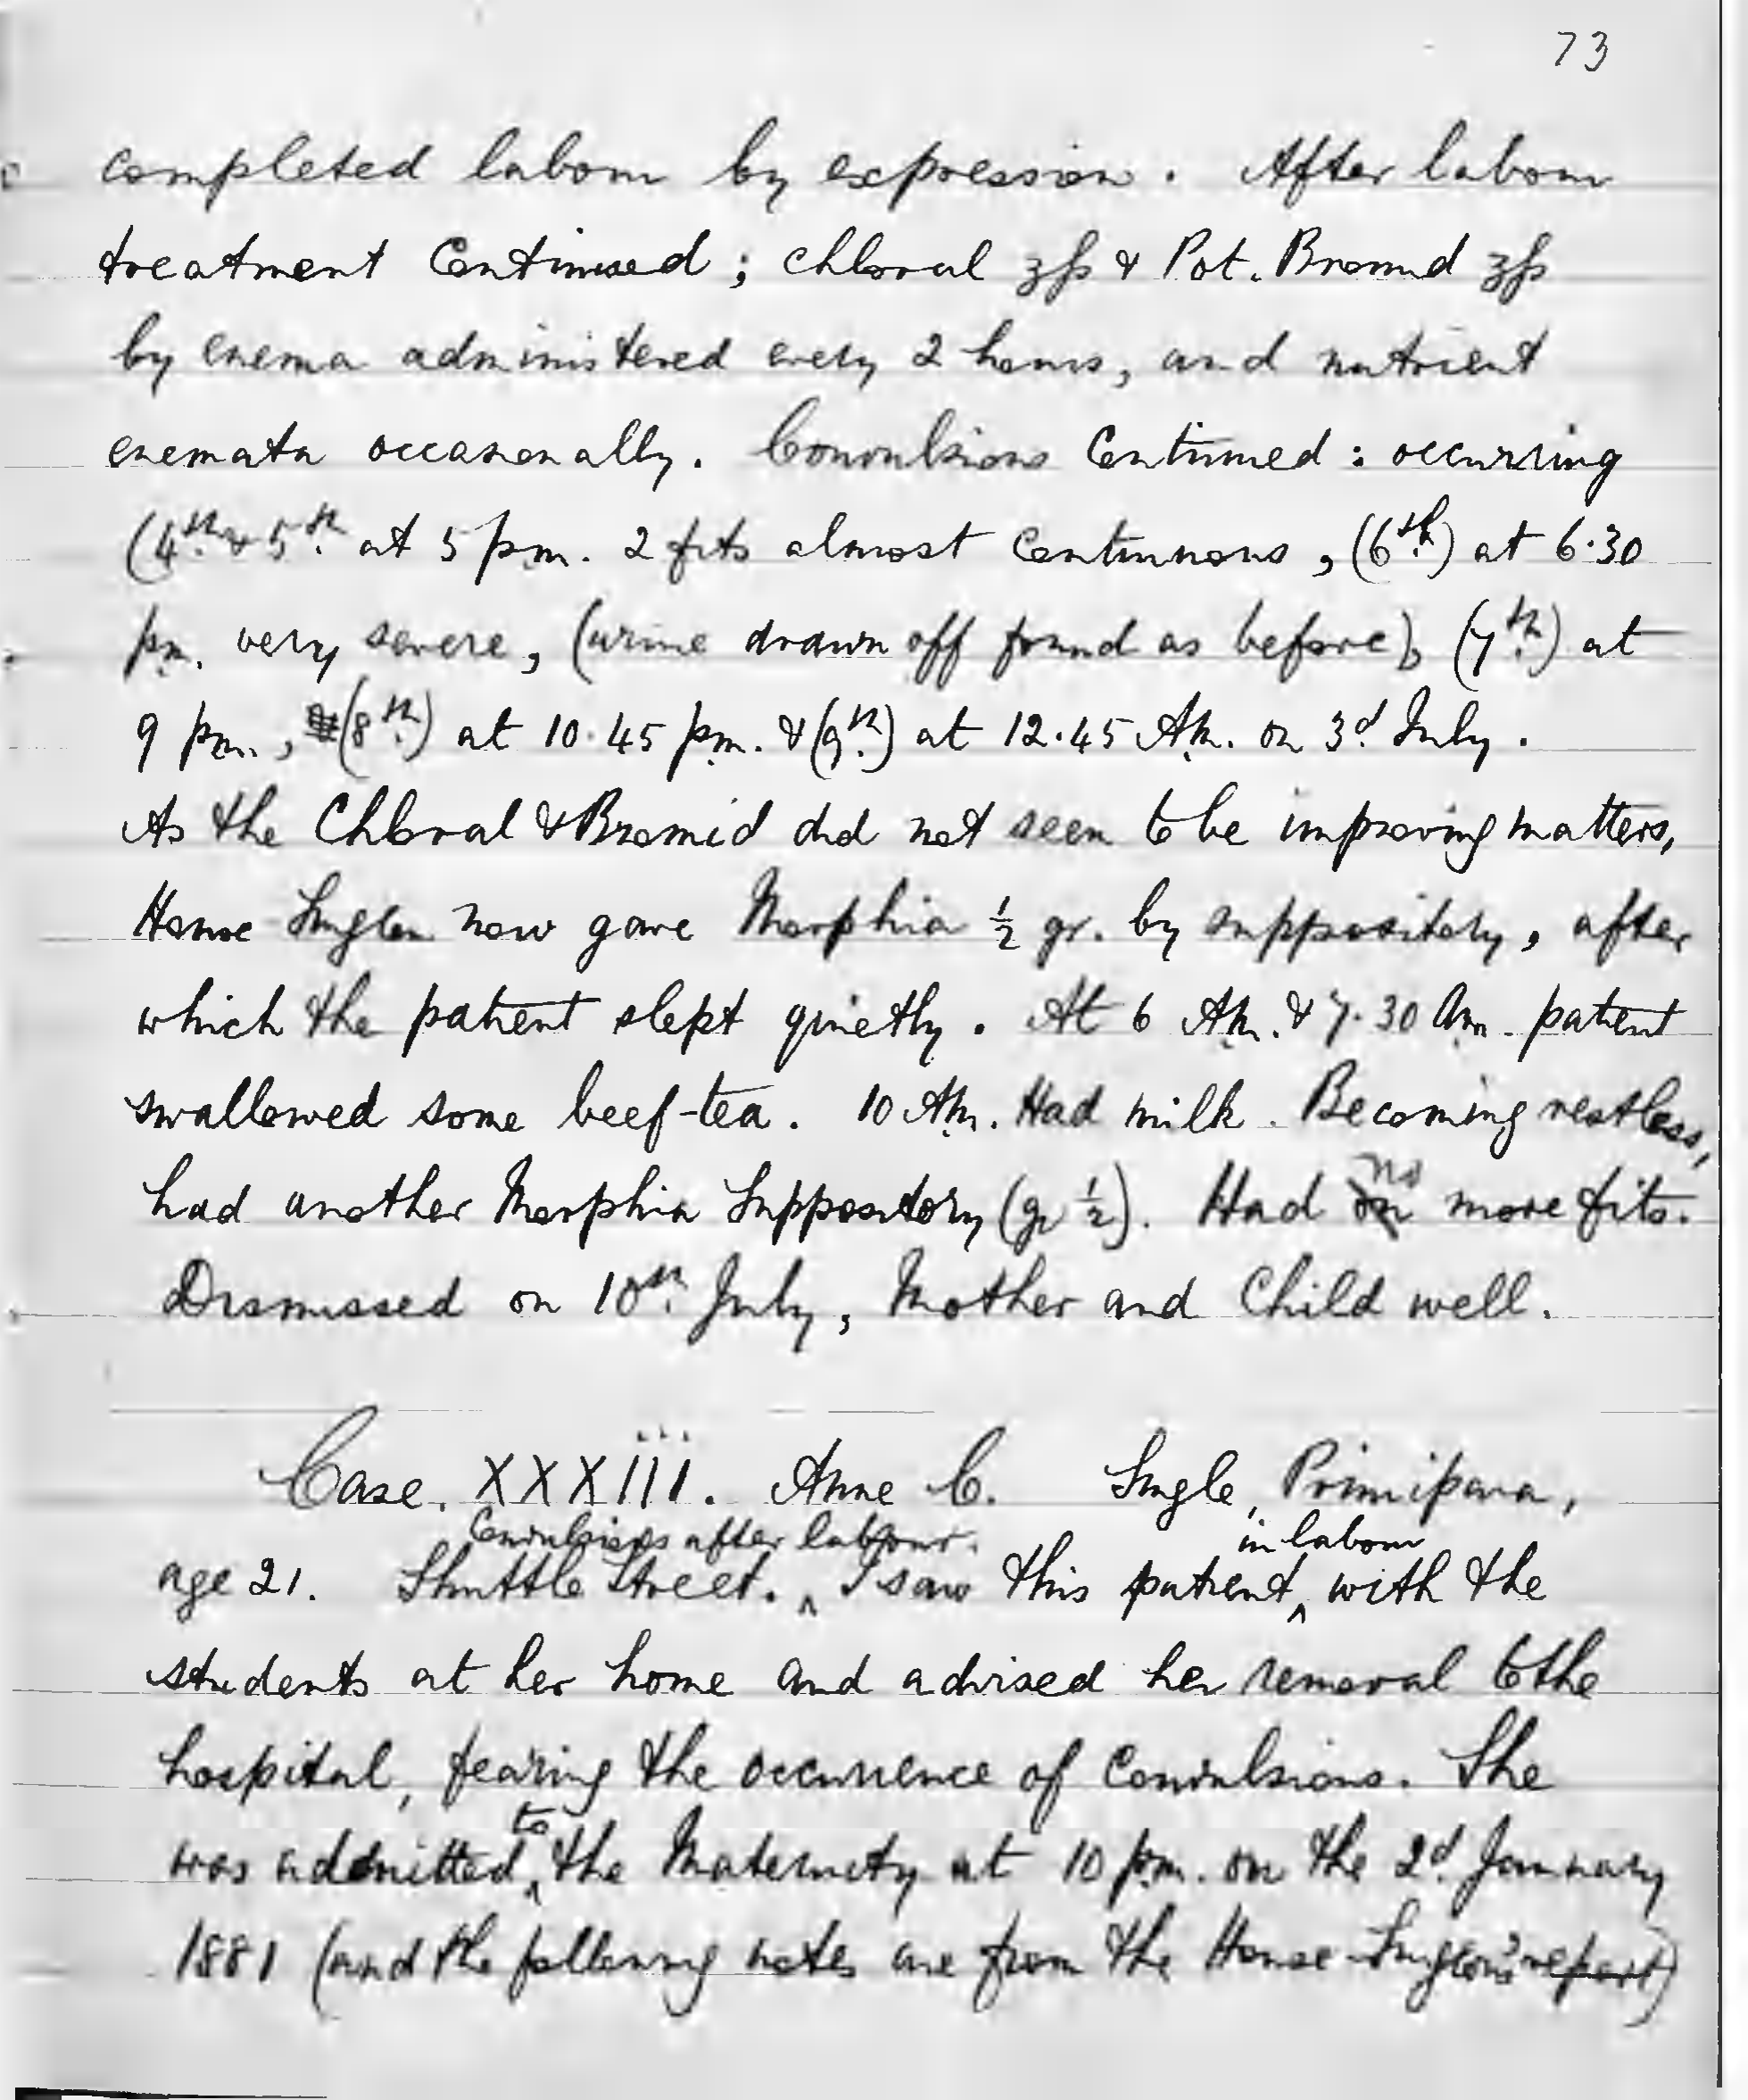 73
completed labour by expression. After labour
treatment Continued; Chloral ʒſs & Pot. Bromid ʒſs
by enema administered every 2 hours, and nutrient
enemata occasionally. Convulsions Continued: occurring
(4th & 5th at 5 pm. 2 fits almost Continuous, (6th) at 6.30
pm. very severe, (urine drawn off found as before), (7th) at
9 pm., (8th) at 10.45 pm. & (9th) at 12.45 AM. on 3d July.
As the Chloral & Bromid did not seem to be improving matters,
House Surgeon now gave Morphia ½ gr. by suppository, after
which the patient slept quietly. At 6 AM. & 7.30 Am. patient
swallowed some beef-tea. 10 AM. Had milk. Becoming restless,
had another Morphia Suppository (gr ½). Had no more fits.
Dismissed on 10th July, Mother and Child well.
Case. XXXiii. Anne C. Single, Primipara,
Convulsions after labour. in labour
age 21. Shuttle Street. ^ I saw this patient ^ with the
students at her home and advised her removal to the
hospital, fearing the occurrence of Convulsions. She
to
was admitted ^ the Maternity at 10 p.m. on the 2d January
1881 (and the following notes are from the House-Surgeon's report)